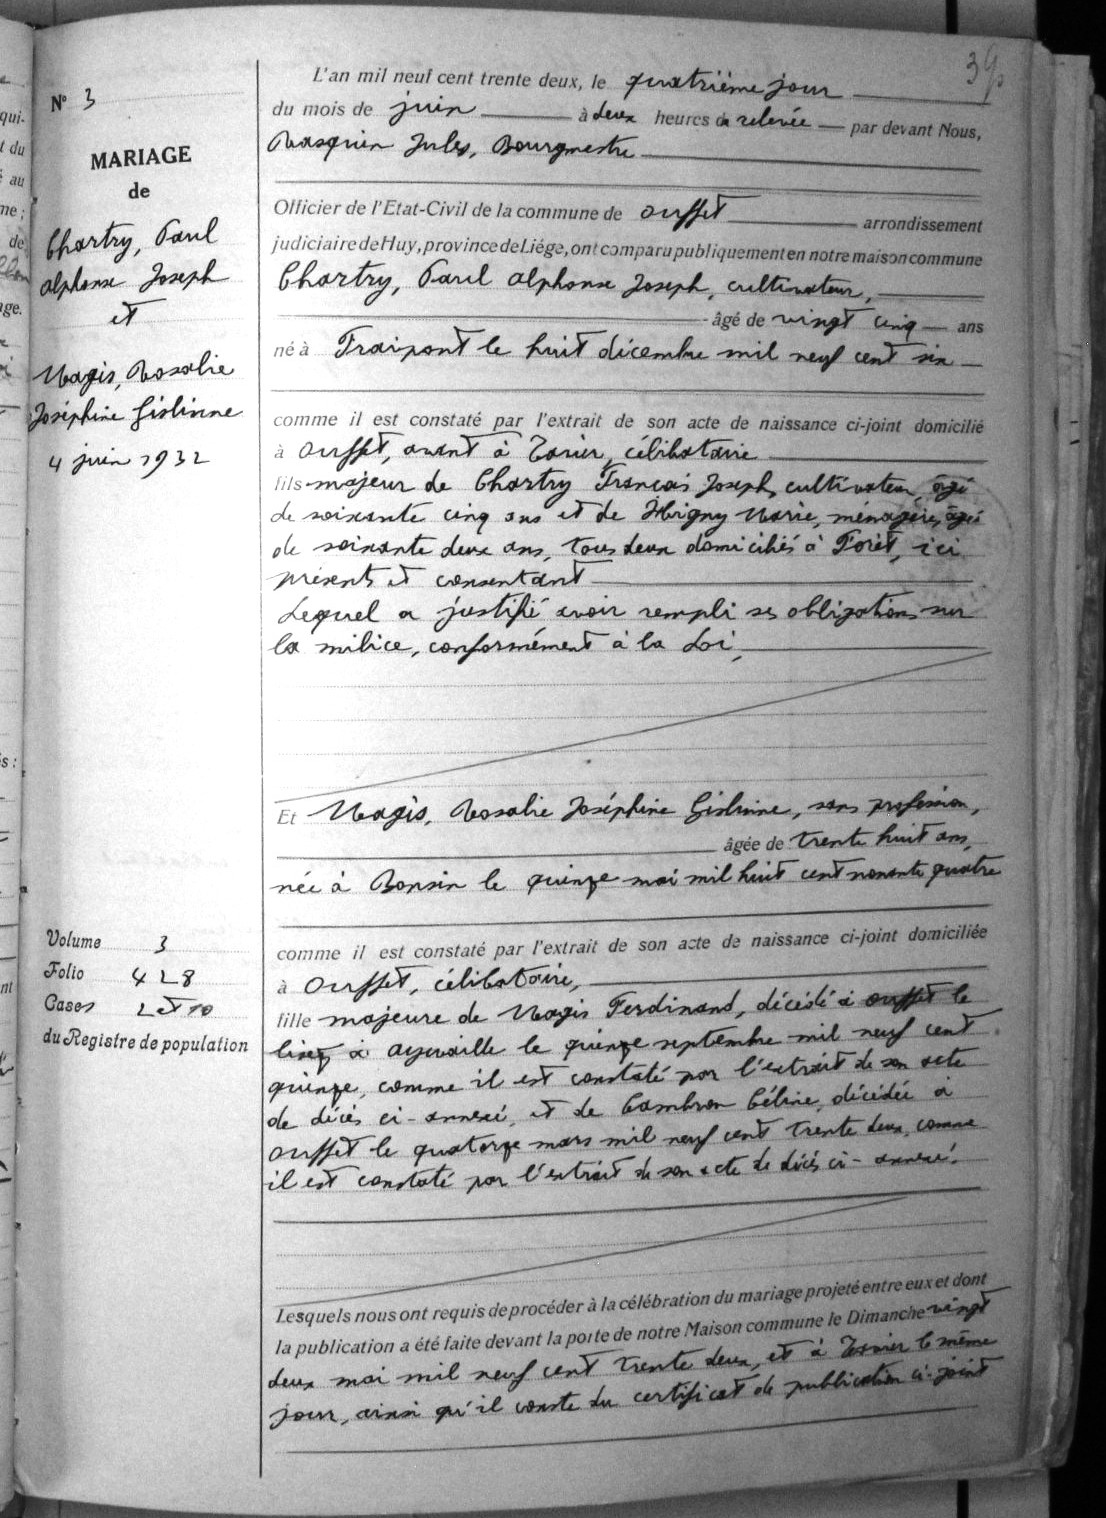 39
N° 3
MARIAGE
de
Chartry, Paul
Alphonse Joseph
et
Magis, Rosalie
Joséphine Gislinne
4 juin 1932
L'an mil neuf cent trente deux, le quatrième jour
du mois de juin à deux heures de relevée par devant Nous,
Rasquin Jules, Bourgmestre
Officier de l'Etat-Civil de la commune de Ouffet arrondissement
judiciaire de Huy, province de Liége, ont comparu publiquement en notre maison commune
Chartry, Paul Alphonse Joseph, cultivateur,
âgé de vingt cinq ans
né à Fraipont le huit décembre mil neuf cent six
comme il est constaté par l'extrait de son acte de naissance ci-joint domicilié
à Ouffet, avant à Xhoris, célibataire
fils majeur de Chartry François Joseph, cultivateur, âgé
de soixante cinq ans et de Marie, ménagère, âgée
de soixante deux ans, tous deux domiciliés à Forêt, ici
présents et consentant
Lequel a justifié avoir rempli ses obligations sur
la milice, conformément à la Loi,
Et Magis, Rosalie Joséphine Gislinne, sans profession,
âgée de trente huit ans,
née à Bonsin le quinze mai mil huit cent nonante quatre
comme il est constaté par l'extrait de son acte de naissance ci-joint domiciliée
à Ouffet, célibataire,
fille majeure de Magis Ferdinand, décédé à Ouffet le
lisez à Aywaille le quinze septembre mil neuf cent
quinze, comme il est constaté par l'extrait de son acte
de décès ci-annexé, et de Cambron Céline, décédée à
Ouffet le quatorze mars mil neuf cent trente deux, comme
il est constaté par l'extrait de son acte de décès ci-annexé.
Volume 3
Folio 428
Cases 2 et 10
du Registre de population
Lesquels nous ont requis de procéder à la célébration du mariage projeté entre eux et dont
la publication a été faite devant la porte de notre Maison commune le Dimanche vingt
deux mai mil neuf cent trente deux, et à le même
jour, ainsi qu'il conste du certificat de publication ci-joint